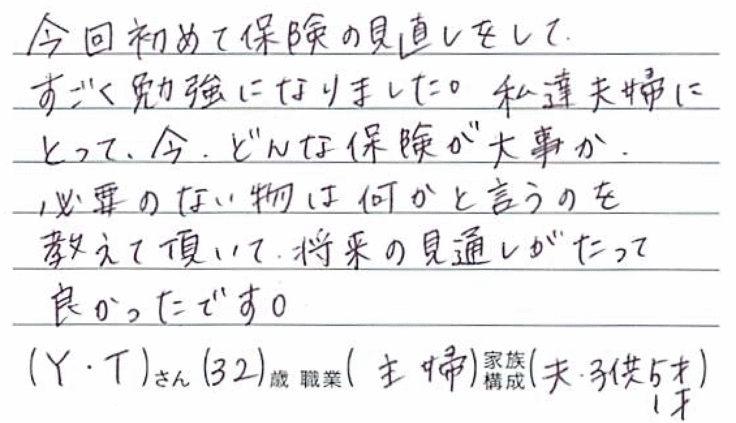 今回初めて保険の見直しをして、
すごく勉強になりました。私達夫婦に
とって、今、どんな保険が大事か、
必要のない物は何かと言うのを
教えて頂いて、将来の見通しがたって
良かったです。
(Y・T)さん(32)歳 職業(主婦)家族構成(夫・子供5才
1才)